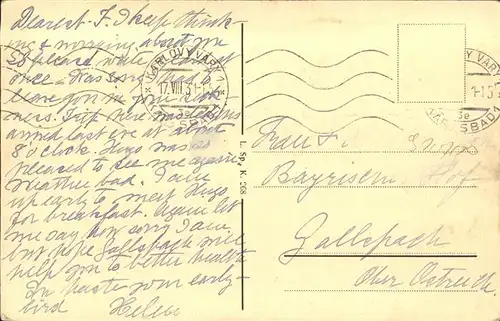 Dearest F. I keep think-
ing & worrying about you
so please write
once. Was sorry had to
leave you in
Trip here was
arrived last eve at about
8 o'clock. Hugo was so
pleased to see me again
Weather bad. I am
up early to meet Hugo
for breakfast. Again let
me say how sorry I am
but hope Gallspach will
help you to better health
In haste your early-
bird Helene
KARLOVY VARY 1
17.VIII.31-15
KARLSBAD 1
Y VARY
1-15
KARLSBAD 1
L. Sp. K. 268
Frau F.
Bayrischer Hof
Gallspach
Ober Östreich